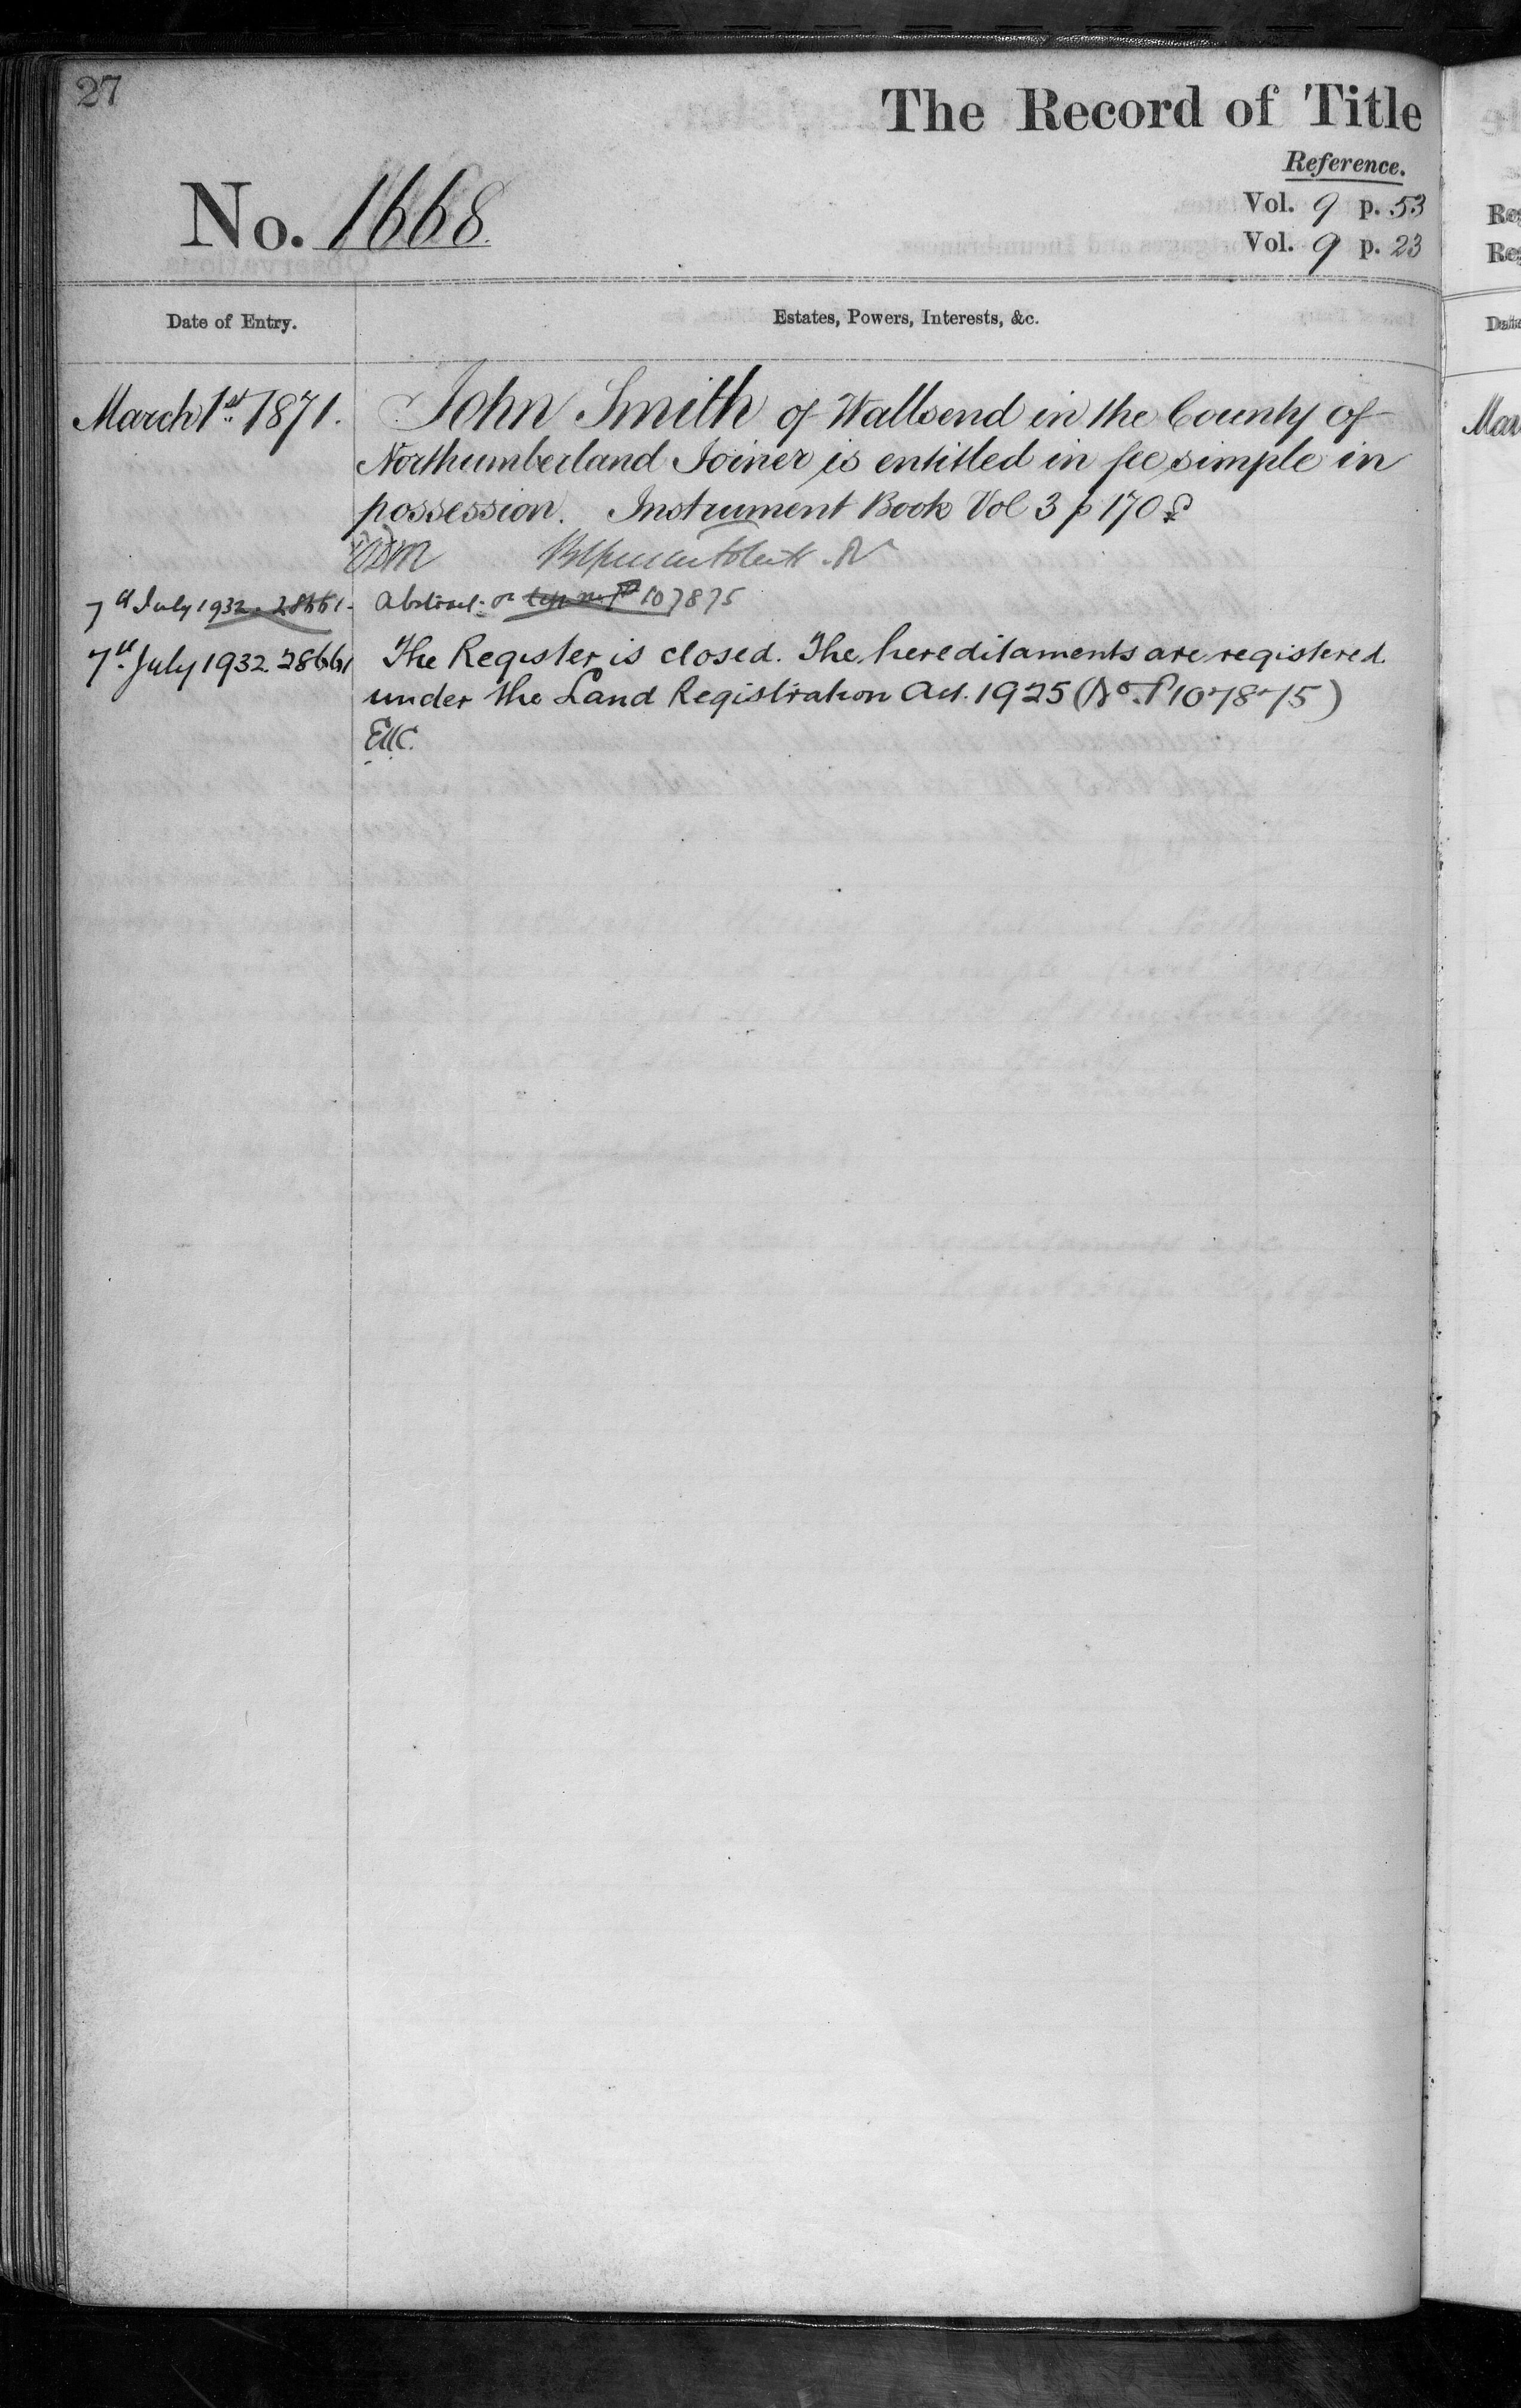 27
The Record of Title
Reference.
No. 1668.
Vol. 9 p. 53
Vol. 9 p. 23
Date of Entry.
Estates, Powers, Interests, &c.
March 1st 1871.
John Smith of Wallsend in the County of
Northumberland Joiner is entitled in fee simple in
possession. Instrument Book Vol 3 p 170
7th July 1932. 28661. Abstract on 107875
7th July 1932. 28661 The Register is closed. The hereditaments are registered
under the Land Registration Act. 1925 (No. P107875)